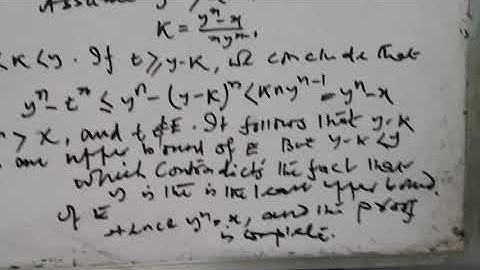 Assume y
K = yⁿ - x / n yⁿ⁻¹
< K < y . If t ≥ y - K, we conclude that
yⁿ - tⁿ ≤ yⁿ - (y-K)ⁿ < K n yⁿ⁻¹ = yⁿ - x
> x, and t ∉ E . It follows that y-K
an upper bound of E But y-K < y
which Contradicts the fact that
y is the is the least upper bound.
of E
Hence yⁿ = x, and the proof
is complete.